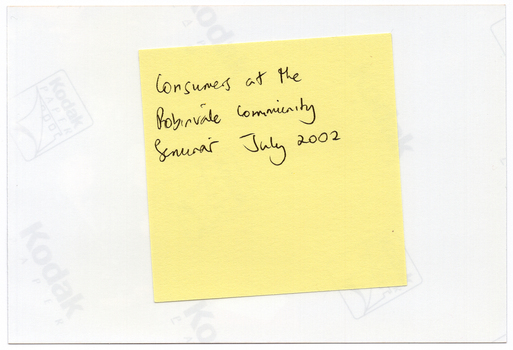 Consumers at the
Robinvale Community
Seminar July 2002
Kodak
Kodak
PAPER
Kodak
Kodak